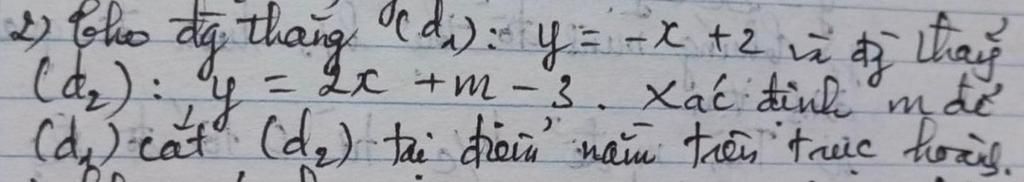 2) Cho đg thẳng (d₁): y = -x + 2 và đg thẳng
(d₂): y = 2x + m - 3. Xác định m để
(d₁) cắt (d₂) tại điểm nằm trên trục hoành.